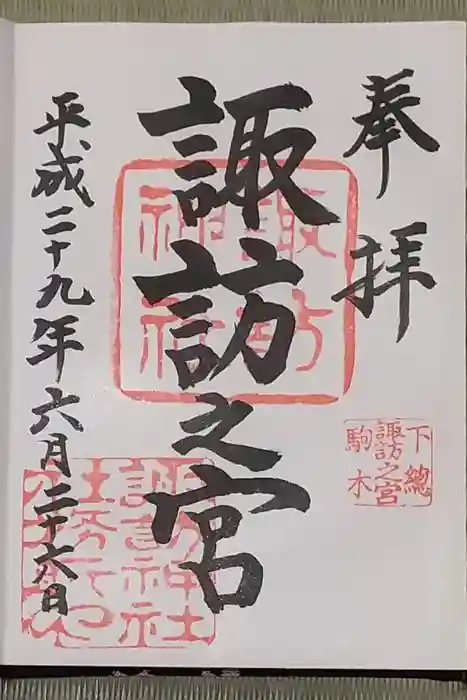 奉拝
下總
諏訪之宮
駒木
諏訪之宮
諏訪神社
諏訪神社
社務所
平成二十九年六月二十六日